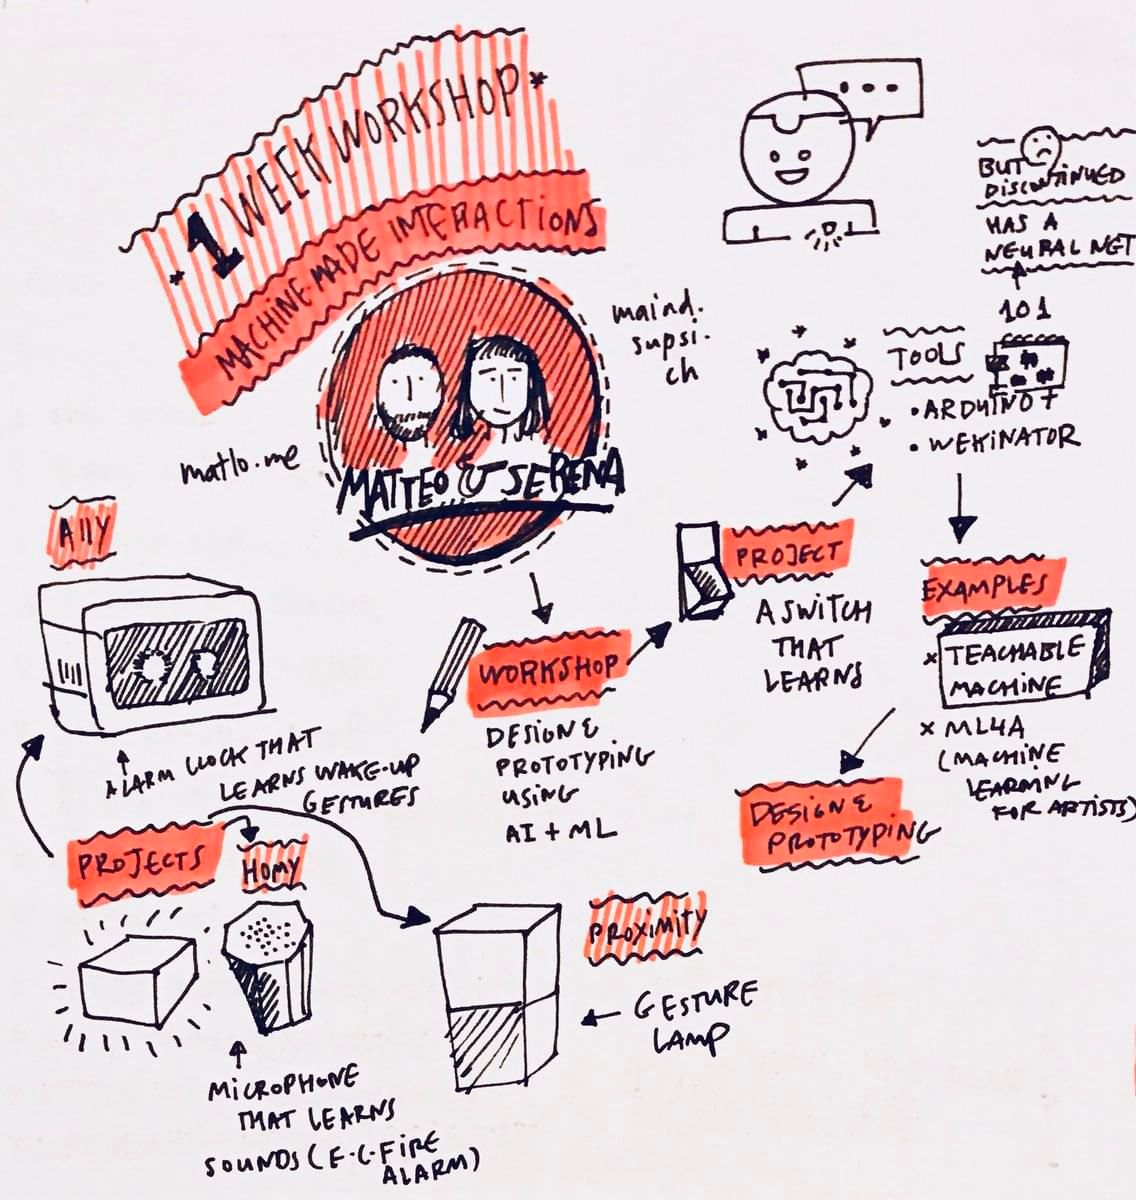 *1 WEEK WORKSHOP*
MACHINE MADE INTERACTIONS
MATTEO & SERENA
matlo.me
maind.
supsi.
ch
...
BUT
DISCONTINUED
HAS A
NEURAL NET
101
TOOLS
• ARDUINO +
• WEKINATOR
PROJECT
A SWITCH
THAT
LEARNS
EXAMPLES
x TEACHABLE
MACHINE
x ML4A
(MACHINE
LEARNING
FOR ARTISTS)
WORKSHOP
DESIGN &
PROTOTYPING
USING
AI + ML
DESIGN &
PROTOTYPING
Ally
ALARM CLOCK THAT
LEARNS WAKE-UP
GESTURES
PROJECTS
HOMY
MICROPHONE
THAT LEARNS
SOUNDS (E.G. FIRE
ALARM)
PROXIMITY
GESTURE
LAMP